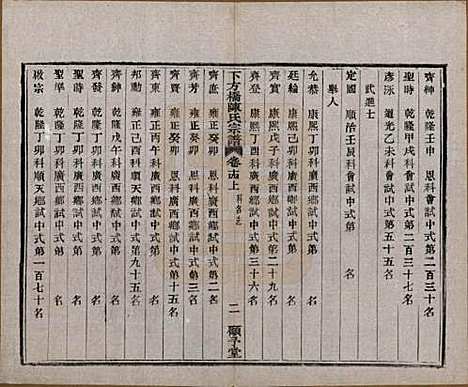 齊紳 乾隆壬申 恩科會試中式第二百三十名
聖時 乾隆甲戌科會試中式第二百三十七名
彥泳 道光乙未科會試中式第五十五名
武進士
定國 順治壬辰科會試中式第 名
舉人
允恭 康熙丁卯科廣西鄉試中式第 名
廷綸 康熙己卯科廣西鄉試中式第 名
齊登 康熙戊子科廣西鄉試中式第二十九名
齊實 康熙丁酉科廣西鄉試中式第三十六名
下方橋陳氏宗譜 卷十四上 科名志 二 願予堂
齊庶 雍正癸卯 恩科廣西鄉試中式第二名
齊芳 雍正癸卯 恩科廣西鄉試中式第三名
齊賢 雍正癸卯 恩科廣西鄉試中式第十五名
齊東 雍正丙午科廣西鄉試中式第 名
邦勳 雍正己酉科順天鄉試中式第九十五名
齊紳 乾隆戊午科廣西鄉試中式第 名
齊發 乾隆丁卯科廣西鄉試中式第 名
聖時 乾隆丁卯科廣西鄉試中式第 名
聖準 乾隆丁卯科廣西鄉試中式第 名
啟宗 乾隆丁卯科順天鄉試中式第一百七十名